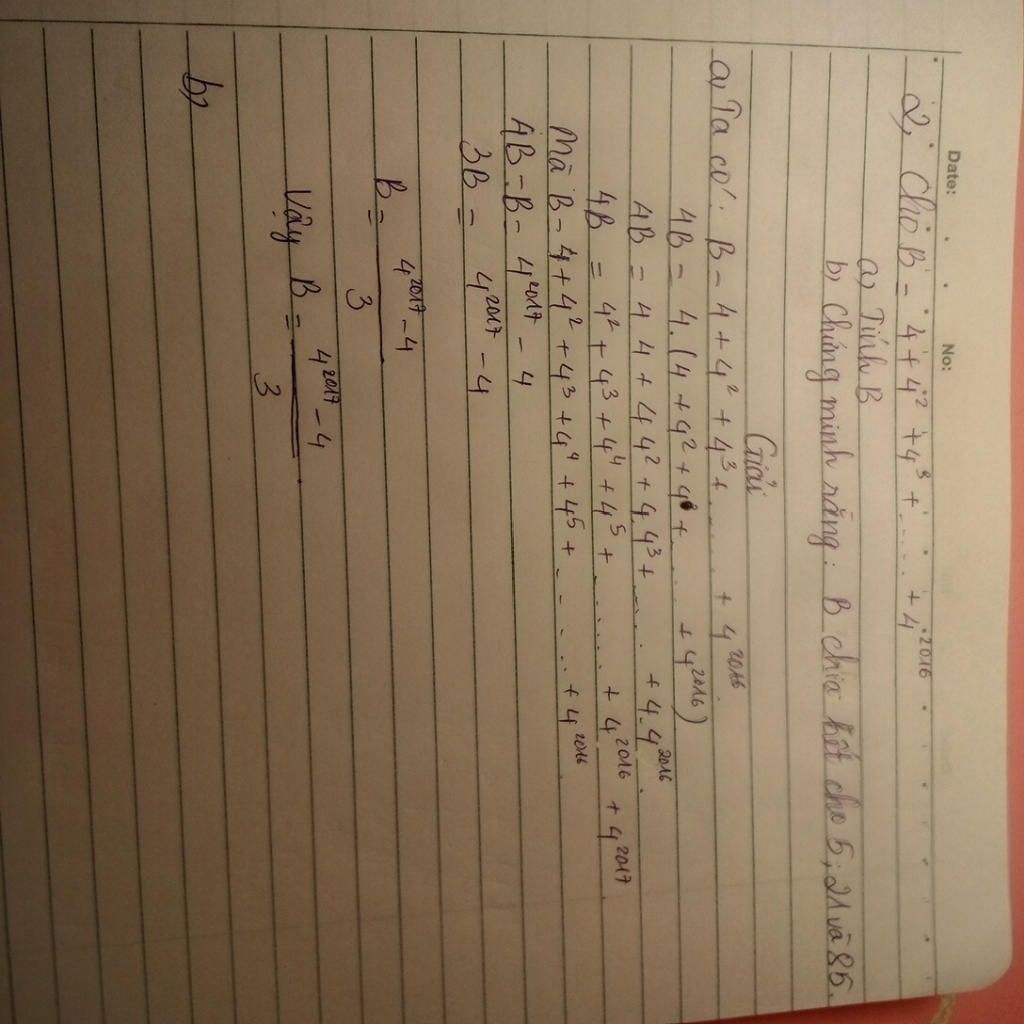 Date: No:
2, Cho B = 4 + 4² + 4³ + ..... + 4²⁰¹⁶
a) Tính B
b) Chứng minh rằng: B chia hết cho 5; 21 và 85.
Giải
a, Ta có: B = 4 + 4² + 4³ + ..... + 4²⁰¹⁶
4B = 4.(4 + 4² + 4³ + .... + 4²⁰¹⁶)
4B = 4.4 + 4.4² + 4.4³ + ..... + 4.4²⁰¹⁶.
4B = 4² + 4³ + 4⁴ + 4⁵ + ...... + 4²⁰¹⁶ + 4²⁰¹⁷
Mà B = 4 + 4² + 4³ + 4⁴ + 4⁵ + ..... + 4²⁰¹⁶
4B - B = 4²⁰¹⁷ - 4
3B = 4²⁰¹⁷ - 4
B = 4²⁰¹⁷ - 4
3
Vậy B = 4²⁰¹⁷ - 4
3
b,